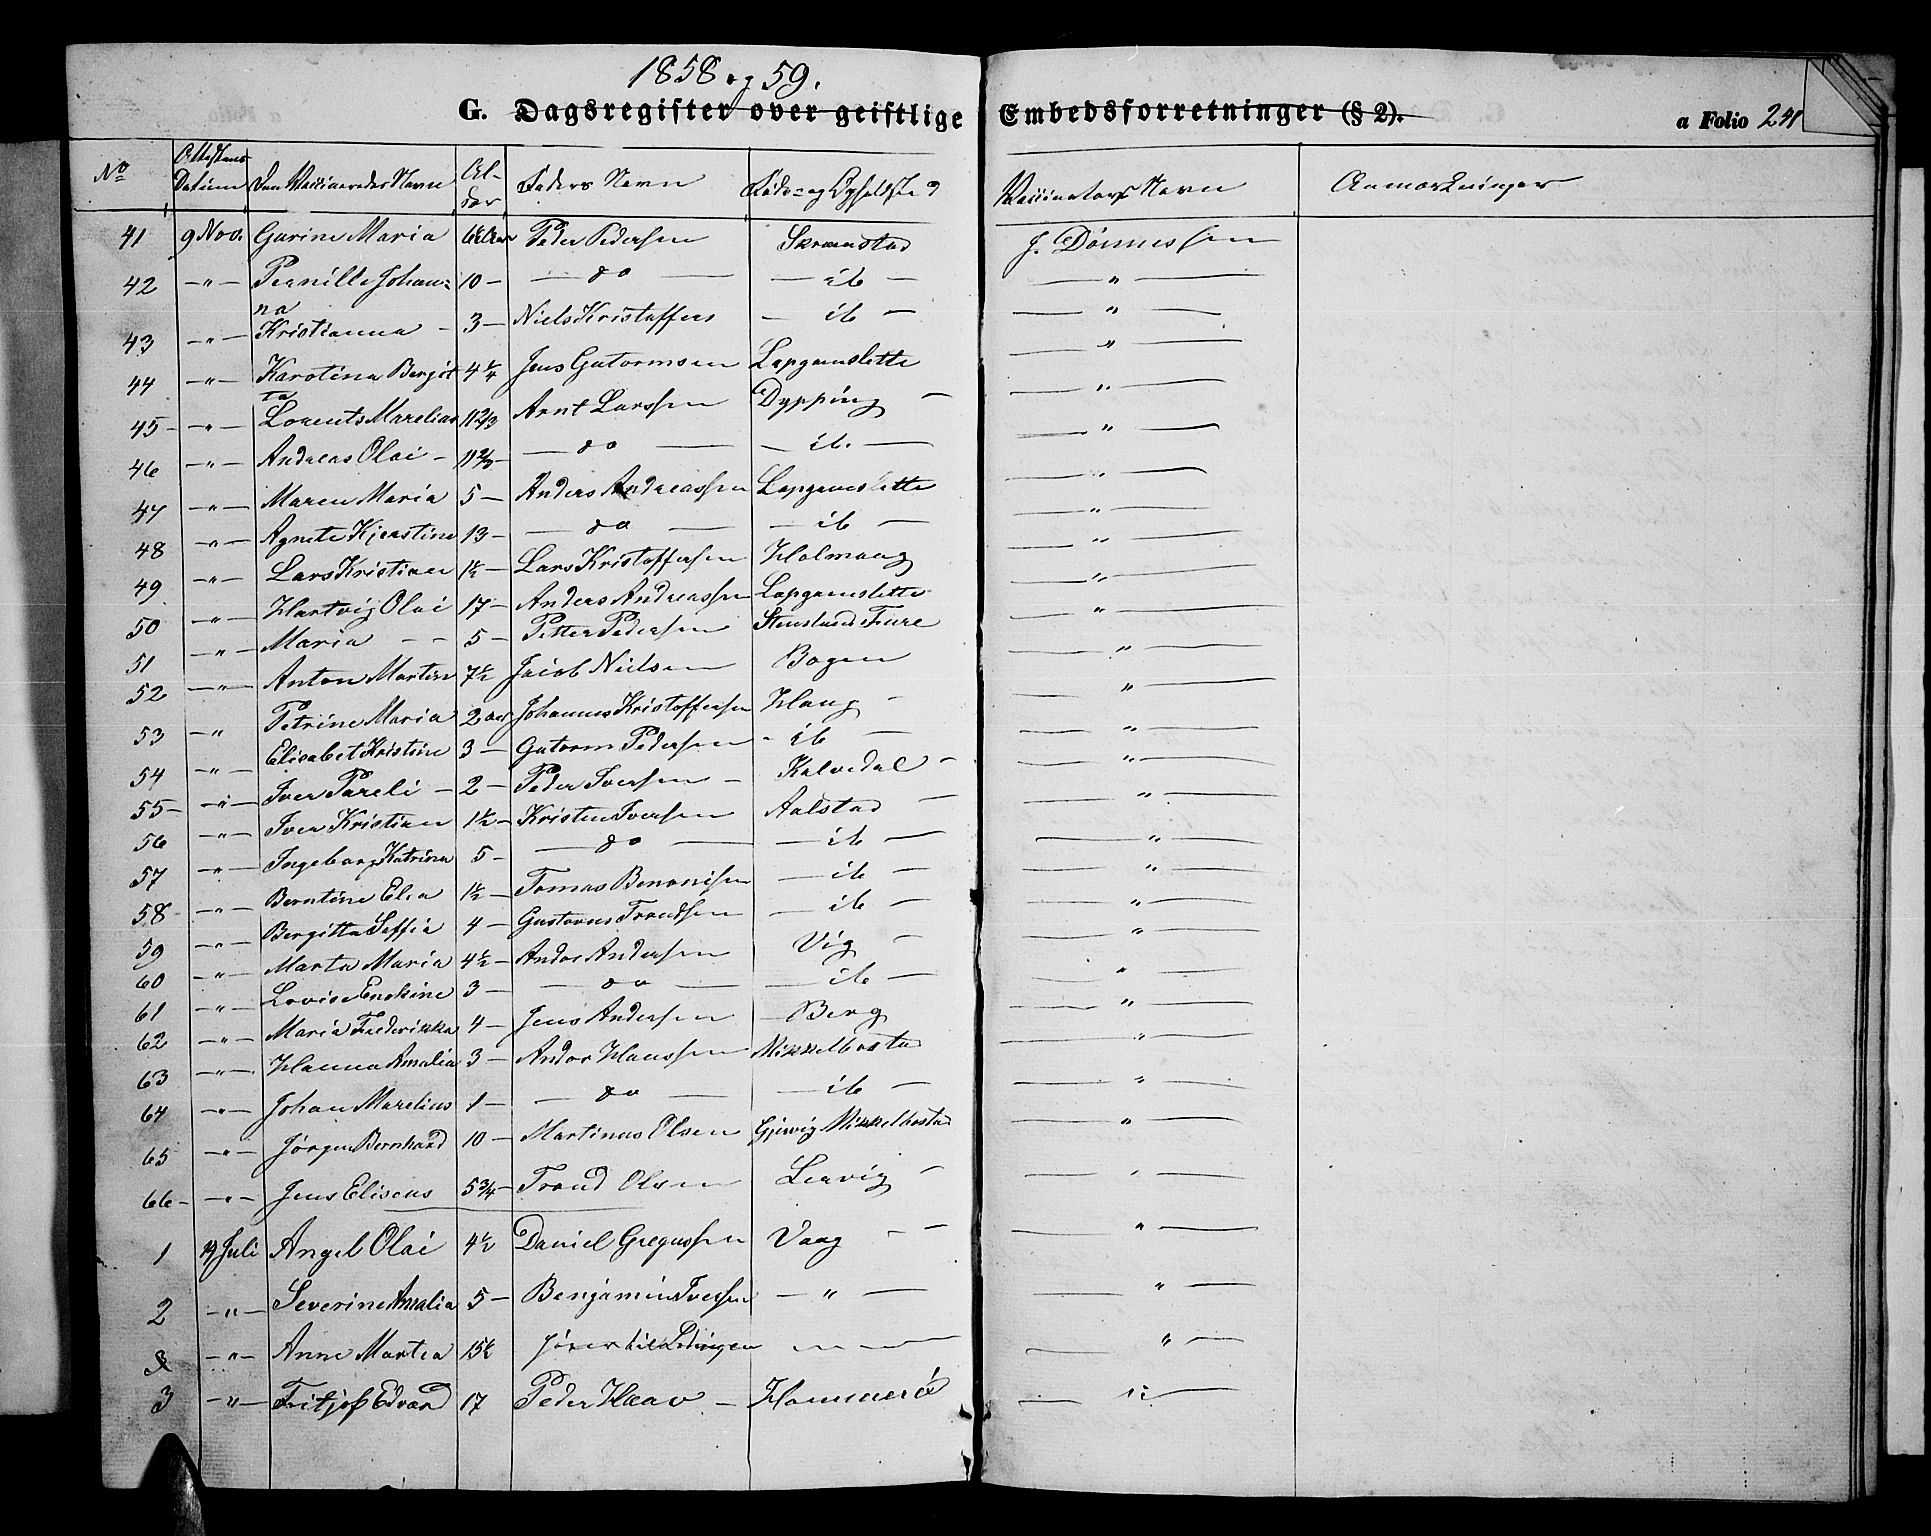 1858 og 59.
G. Dagsregister over geistlige Embedsforretninger (§ 2). a Folio 241
No Attestens Datum Den Vaccineredes Navn Alder Faders Navn Føde- og Opholdsted Vaccinators Navn Anmærkninger
41 9 Nov. Gurine Maria Peder Pedersen Skramstad J. Dønnessen
42 -"- Pernille Johan= 10 - do - ib - "
na
43 -"- Kristianna - 3 - Niels Kristoffers - ib - "
44 -"- Karolina Bergit 4 1/4 Jens Gutormsen Lapgamslette "
ta
45 -"- Lorents Marelius 11 2/3 Arnt Larssen Dypping - "
46 -"- Andreas Olai - 11 2/3 - do - ib. - "
47 -"- Maren Maria 5 - Anders Andreassen Lapgamslette "
48 -"- Agnete Kjerstine 13 - do - ib - "
49 -"- Lars Kristian 1 1/2 - Lars Kristoffersen Holmaag "
50 -"- Hartvig Olai 17 - Anders Andreassen Lapgamslette "
51 -"- Maria - - 5 - Petter Pedersen Stenslund Fure "
52 -"- Anton Martin 7 1/2 Jacob Nielsen Bogen "
53 " Petrine Maria 2 Johannes Kristoffersen Haug - "
54 -"- Elisabet Kristine 3 - Gutorm Pedersen - ib - "
55 - -"- Iver Pareli - 2 - Peder Iversen - Kalvedal - "
56 -"- Iver Kristian 1 1/2 - Kristen Iversen Aalstad - "
57 -"- Ingeborg Katrina 5 - do - ib - "
58 -"- Berntine Elea 1 1/2 - Tomas Benonisen - ib - "
59 -"- Bergitta Seffia 4 - Gustavus Trondsen - ib - "
60 -"- Marta Maria 4 1/2 - Andor Andersen Vig - "
61 -"- Lovise Enokine 3 - do - ib - "
62 -"- Maria Frederikka 4 - Jens Andersen Berg "
63 -"- Hanna Amalia 3 - Andor Hanssen Mikkelbostad "
64 -"- Johan Marelius 1 - do - ib - "
65 -"- Jørgen Bernhard 10 - Martinus Olsen Gjervig Mikkelbostad "
66 - -"- Jens Eliseus 5 3/4 - Trond Olsen Leervig - "
1 19 Juli Angel Olai 4 1/2 Daniel Gregussen Vaag - "
2 -"- Severine Amalia 5 - Benjamin Iversen - " - "
3 -"- Anne Martea 15 1/2 hører til Lødingen "
3 -"- Fritjof Edvard 17 Peder Haav - Hammerø "